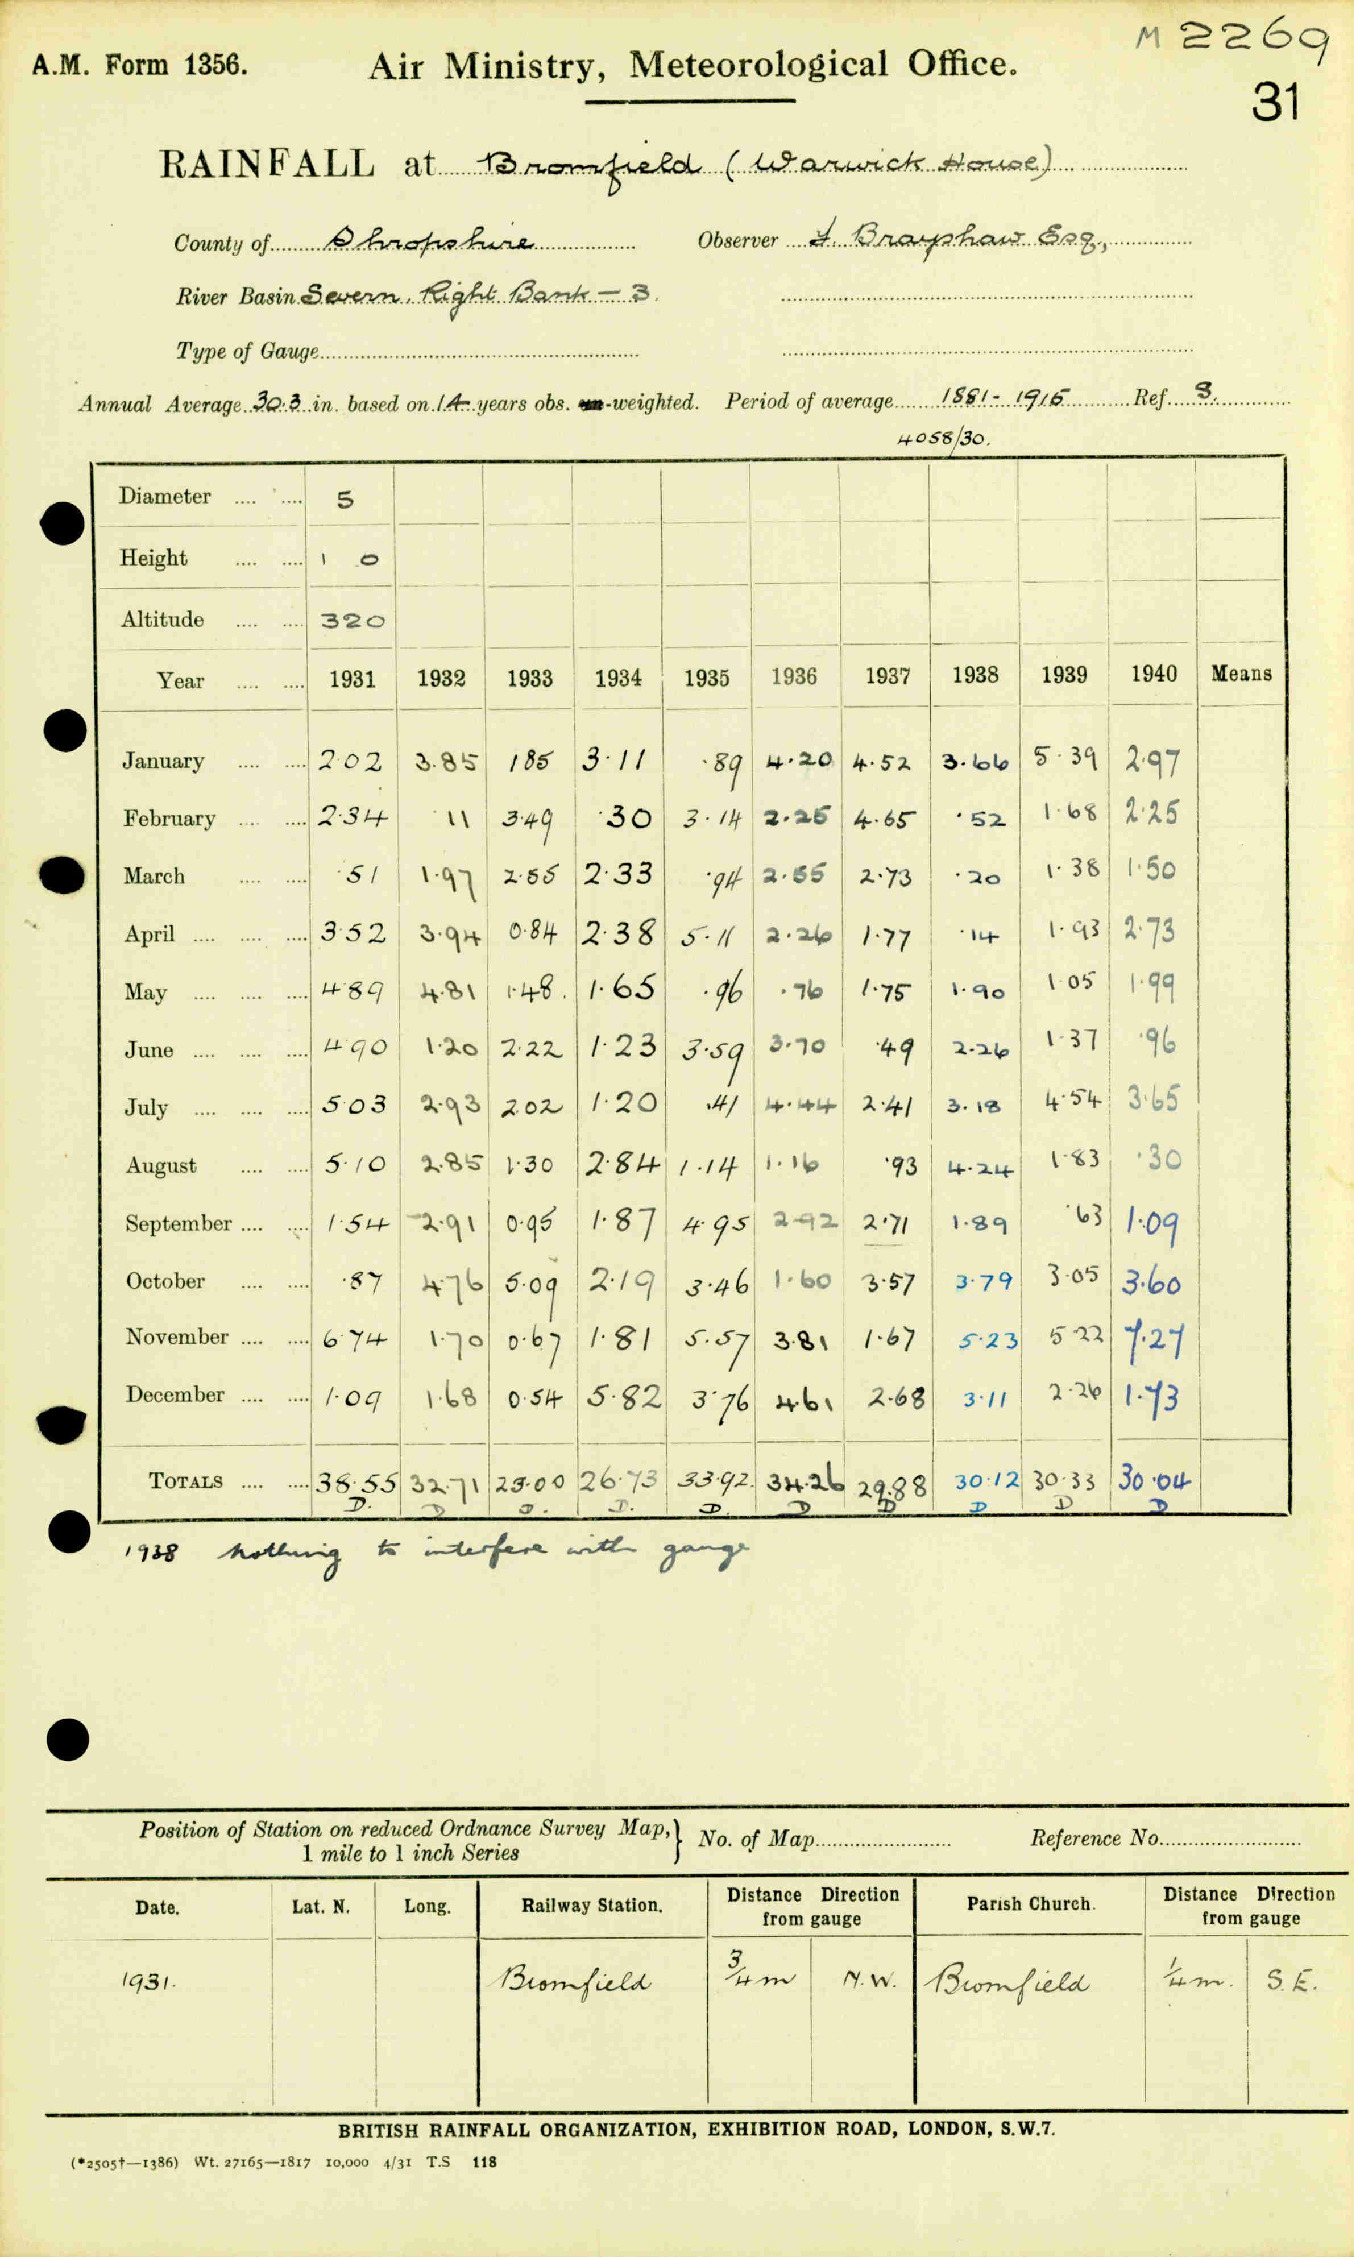 M 2269
A.M. Form 1356. Air Ministry, Meteorological Office.
31
RAINFALL at Bromfield (Warwick House)
County of Shropshire Observer F. Brayshaw Esq.,
River Basin Severn. Right Bank - 3.
Type of Gauge
Annual Average 30.3 in. based on 14 years obs. -weighted. Period of average 1881-1915 Ref. 3.
4058/30.
Diameter .... .... 5
Height .... .... 1 0
Altitude .... .... 320
Year .... .... 1931 1932 1933 1934 1935 1936 1937 1938 1939 1940 Means
January .... .... 2·02 3.85 185 3·11 ·89 4.20 4.52 3.66 5·39 2.97
February .... .... 2·34 11 3.49 ·30 3.14 2.25 4.65 ·52 1·68 2.25
March .... .... ·51 1.97 2.55 2·33 ·94 2.55 2·73 ·20 1·38 1·50
April .... .... .... 3·52 3.94 0.84 2·38 5·11 2.26 1·77 ·14 1·93 2·73
May .... .... .... 4·89 4.81 1·48. 1·65 ·96 ·76 1·75 1·90 1·05 1·99
June .... .... .... 4·90 1·20 2·22 1·23 3·59 3·70 ·49 2·26 1·37 ·96
July .... .... .... 5·03 2.93 2.02 1·20 ·41 4·44 2·41 3.18 4·54 3·65
August .... .... 5·10 2.85 1·30 2·84 1·14 1·16 ·93 4·24 1·83 ·30
September .... .... 1·54 2.91 0.95 1·87 4·95 2.92 2·71 1·89 ·63 1·09
October .... .... ·87 4·76 5·09 2·19 3·46 1·60 3·57 3·79 3·05 3·60
November .... .... 6·74 1·70 0·67 1·81 5·57 3·81 1·67 5·23 5·22 7·27
December .... .... 1·09 1·68 0·54 5·82 3·76 4·61 2·68 3·11 2·26 1·73
TOTALS .... .... 38·55 32·71 23·00 26·73 33·92 34·26 29.88 30·12 30·33 30·04
D. D D. D. D. D D D D D
1938 Nothing to interfere with gauge
Position of Station on reduced Ordnance Survey Map, } No. of Map Reference No.
1 mile to 1 inch Series
Date. Lat. N. Long. Railway Station. Distance Direction from gauge Parish Church. Distance Direction from gauge
1931. Bromfield 3/4 m N.W. Bromfield 1/4 m. S.E.
BRITISH RAINFALL ORGANIZATION, EXHIBITION ROAD, LONDON, S.W.7.
(*2505†—1386) Wt. 27165—1817 10,000 4/31 T.S 118